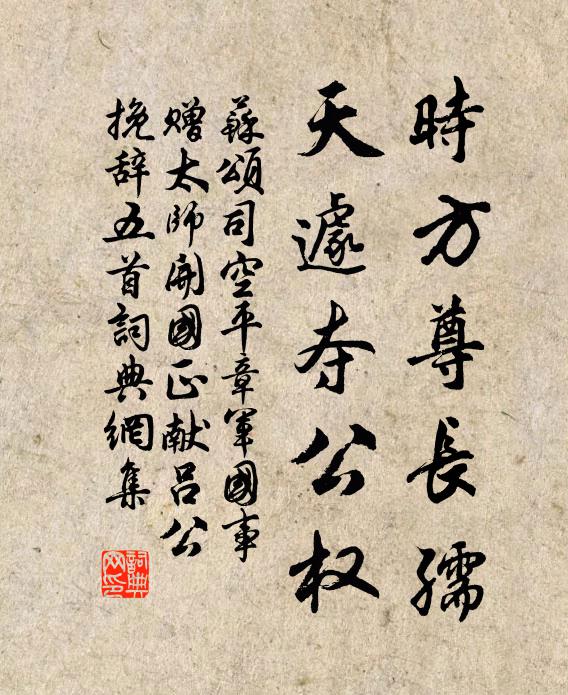 時方尊長孺
天遽夺公权
蘇頌司空平章軍國事
赠太師開國正献吕公
挽辞五首詞典網集
詞典网印